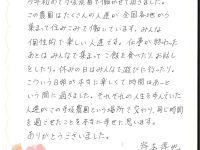 今年初めて与論島で働かせて頂きました。
この農園はたくさんの人達が全国各地から
集まって住みこみで働いています。みんな
個性的で楽しい人達です。仕事が終わった
あとはみんなで集まってご飯を食べたり、お話し
をしたり。休みの日はみんなで遊びに行ったり。
こういう日常がすごく楽しくて時間はあっと
いう間に過ぎました。それぞれの人生を歩んでいた
人達がこの農園という場所で交わり、同じ時間
を過ごせたことを本当に幸せに思います。
ありがとうございました。